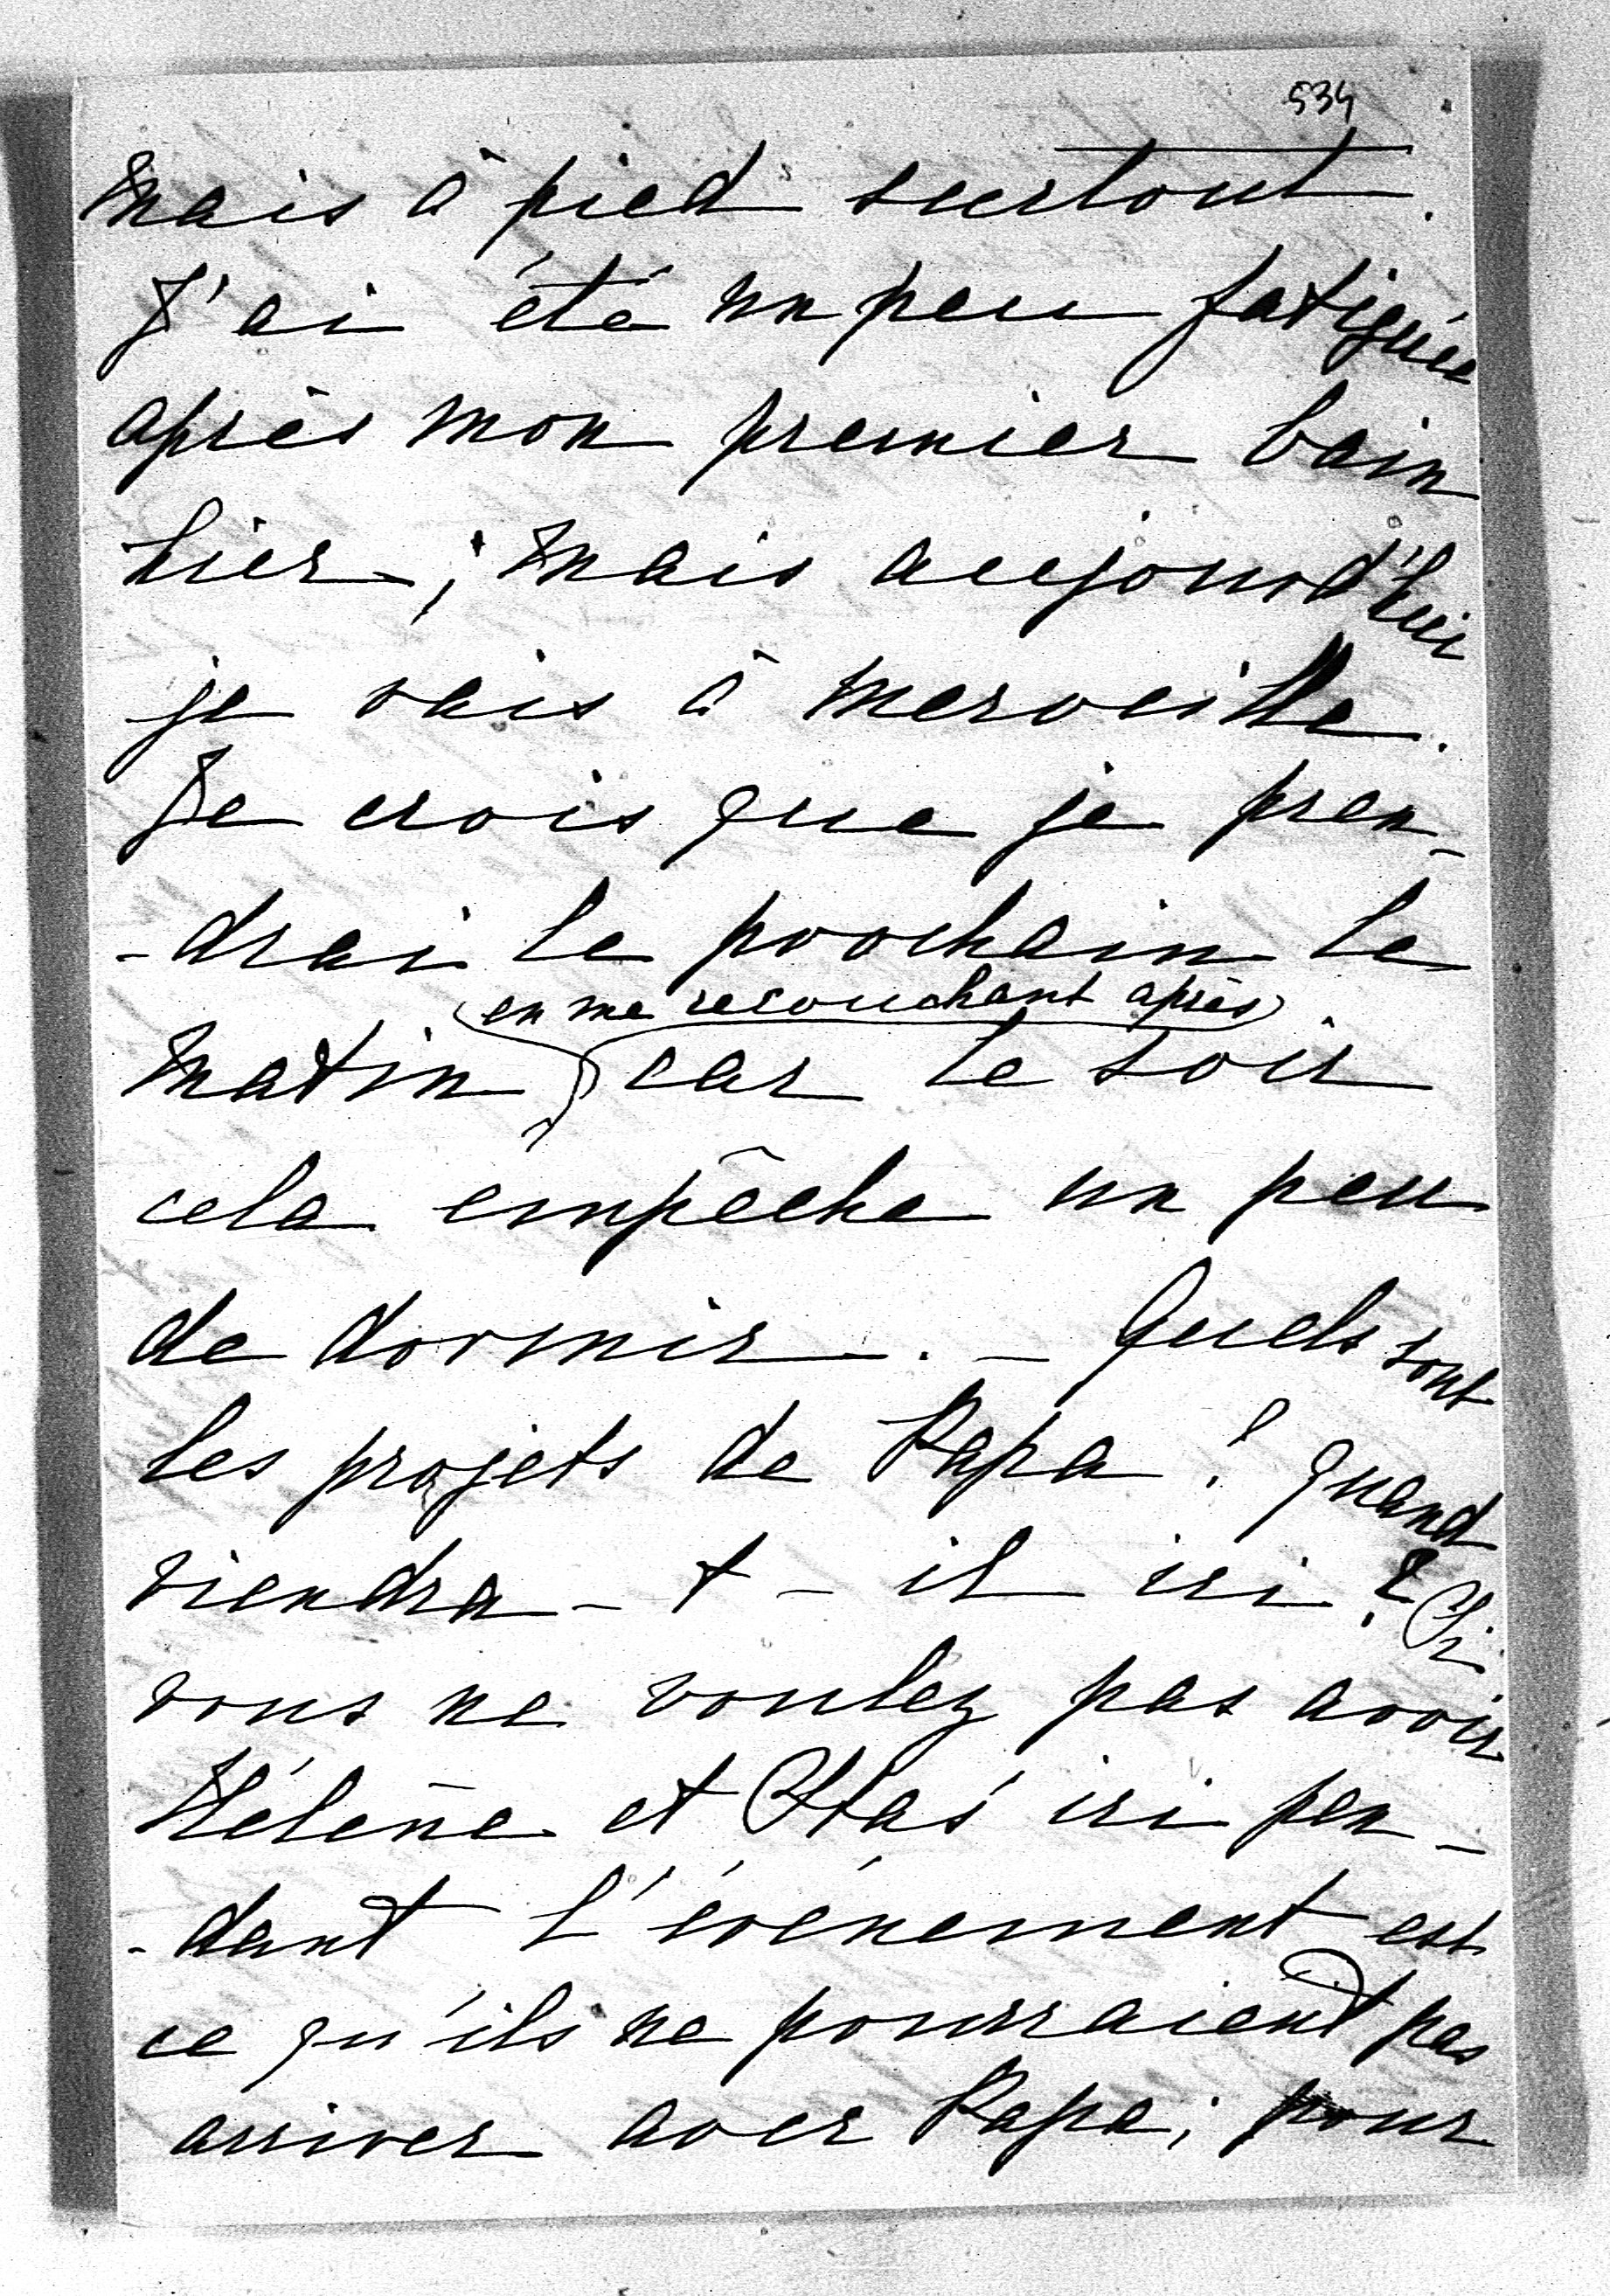 534
mais à pied surtout.
J'ai été un peu fatiguée
après mon premier bain
hier ; mais aujourd'hui
je vais à merveille.
Je crois que je pren-
-drai le prochain le
(en me recouchant après)
matin car le soir
cela empêche un peu
de dormir. – Quels sont
les projets de Papa ? quand
viendra-t-il ici ? Si
vous ne voulez pas avoir
Hélène et Staś ici pen-
-dant l'événement est
ce qu'ils ne pourraient pas
arriver avec Papa ; pour